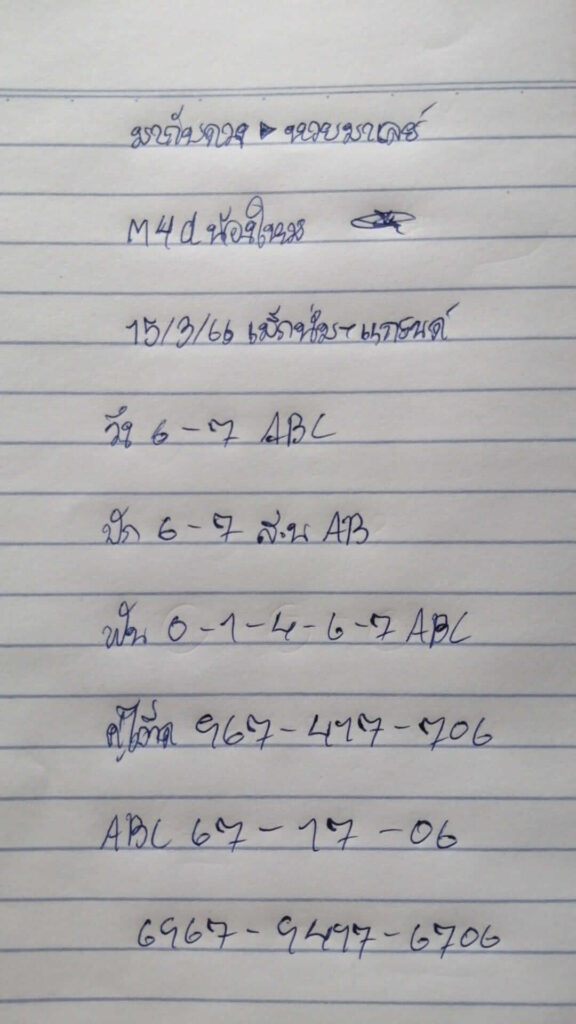 มากับดวง ▸ หวยมาเลย์
M4d น้องใหม่
15/3/66 แม็กนั่ม-แกรนด์
วิ่ง 6-7 ABC
ปัก 6-7 สะบน AB
ฟัน 0-1-4-6-7 ABC
967-497-706
ABC 67-17-06
6967-9497-6706